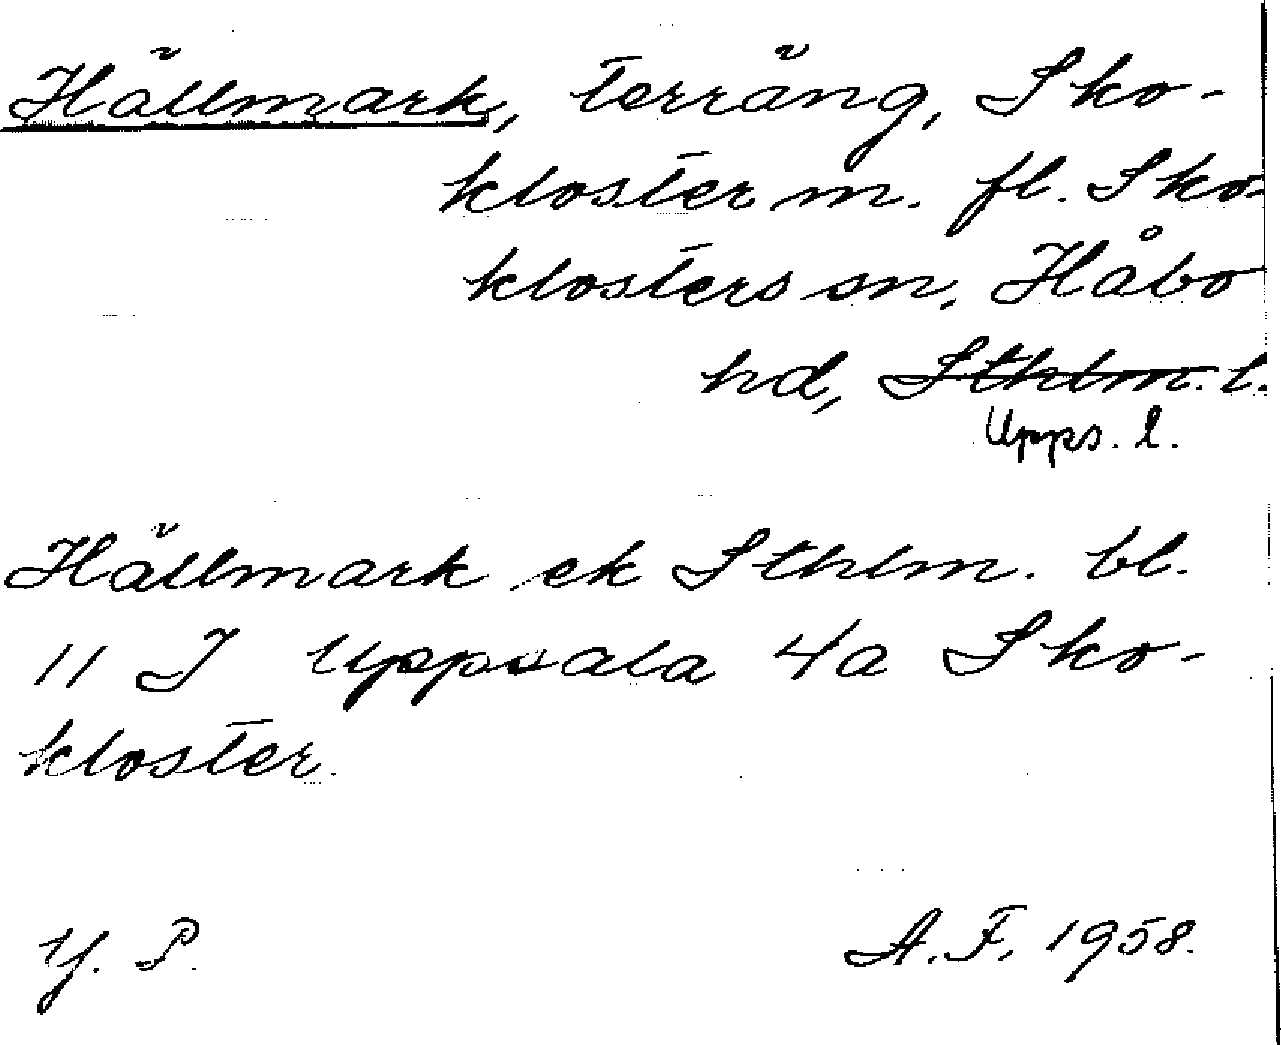 Hällmark, terräng, Sko-
kloster m. fl. Sko-
klosters sn, Håbo
hd, Sthlm. l.
Upps. l.
Hällmark ek Sthlm. bl.
11 J Uppsala 4a Sko-
kloster.
Y. P. A.F. 1958.